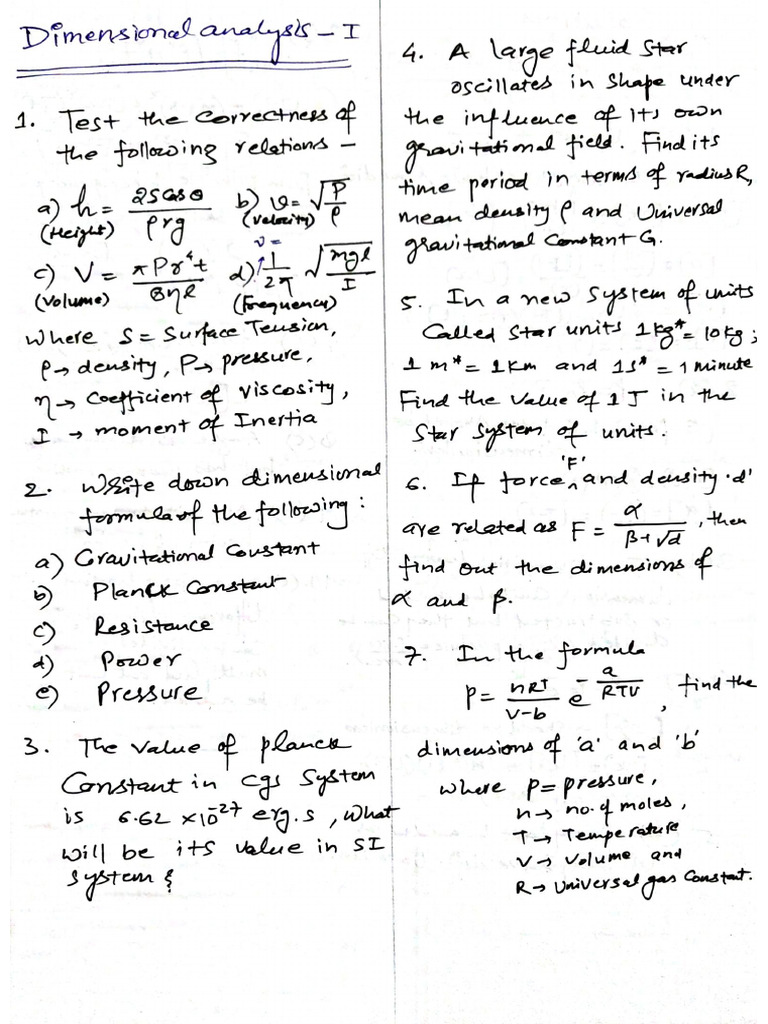 Dimensional analysis - I
1. Test the correctness of
the following relations -
a) h = 2Scosθ / ρrg b) v = √(P/ρ)
(Height) (Velocity)
c) V = πPr⁴t / 8ηl d) ν = 1/2π √(mgl/I)
(Volume) (Frequency)
Where S = Surface Tension,
ρ → density, P → pressure,
η → Coefficient of viscosity,
I → moment of Inertia
2. Write down dimensional
formula of the following :
a) Gravitational Constant
b) Planck Constant
c) Resistance
d) Power
e) Pressure
3. The value of planck
Constant in cgs System
is 6.62 × 10⁻²⁷ erg.s , What
will be its value in SI
system ?
4. A large fluid star
oscillates in shape under
the influence of its own
gravitational field. Find its
time period in terms of radius R,
mean density ρ and Universal
gravitational Constant G.
5. In a new system of units
Called Star units 1 kg* = 10 kg ;
1 m* = 1 km and 1 s* = 1 minute
Find the value of 1 J in the
Star system of units.
6. If force 'F' and density 'd'
are related as F = α / (β + √d) , then
find out the dimensions of
α and β.
7. In the formula
P = nRT / (V-b) e^(-a/RTV) , find the
dimensions of 'a' and 'b'
where p = pressure,
n → no. of moles,
T → Temperature
V → Volume and
R → Universal gas Constant.